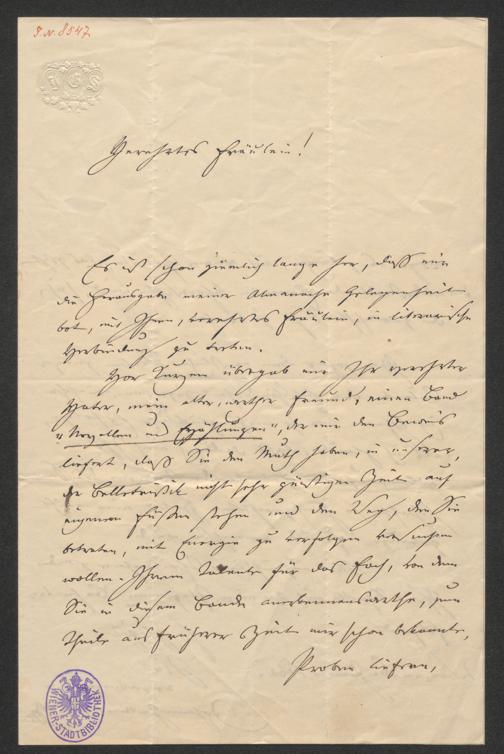 I. N. 8547
Verehrtes Fräulein!
Es ist schon ziemlich lange her, daß mir
die Herausgabe meiner Almanache Gelegenheit
bot, mit Ihnen, verehrtes Fräulein, in literarische
Verbindung zu treten.
Vor Kurzem übergab mir Ihr verehrter
Vater, mein alter, werther Freund, einen Band
„Novellen und Erzählungen", der mir den Beweis
liefert, daß Sie den Muth haben, in unserer,
der Belletristik nicht sehr günstigen Zeit auf
eigenen Füßen stehen und den Weg, den Sie
betreten, mit Energie zu verfolgen
wollen. Ihrem Talente für das Fach, von dem
Sie in diesem Bande anerkennenswerthe, zum
Theile aus früherer Zeit mir schon bekannte,
Proben liefern,
WIENER-STADTBIBLIOTHEK